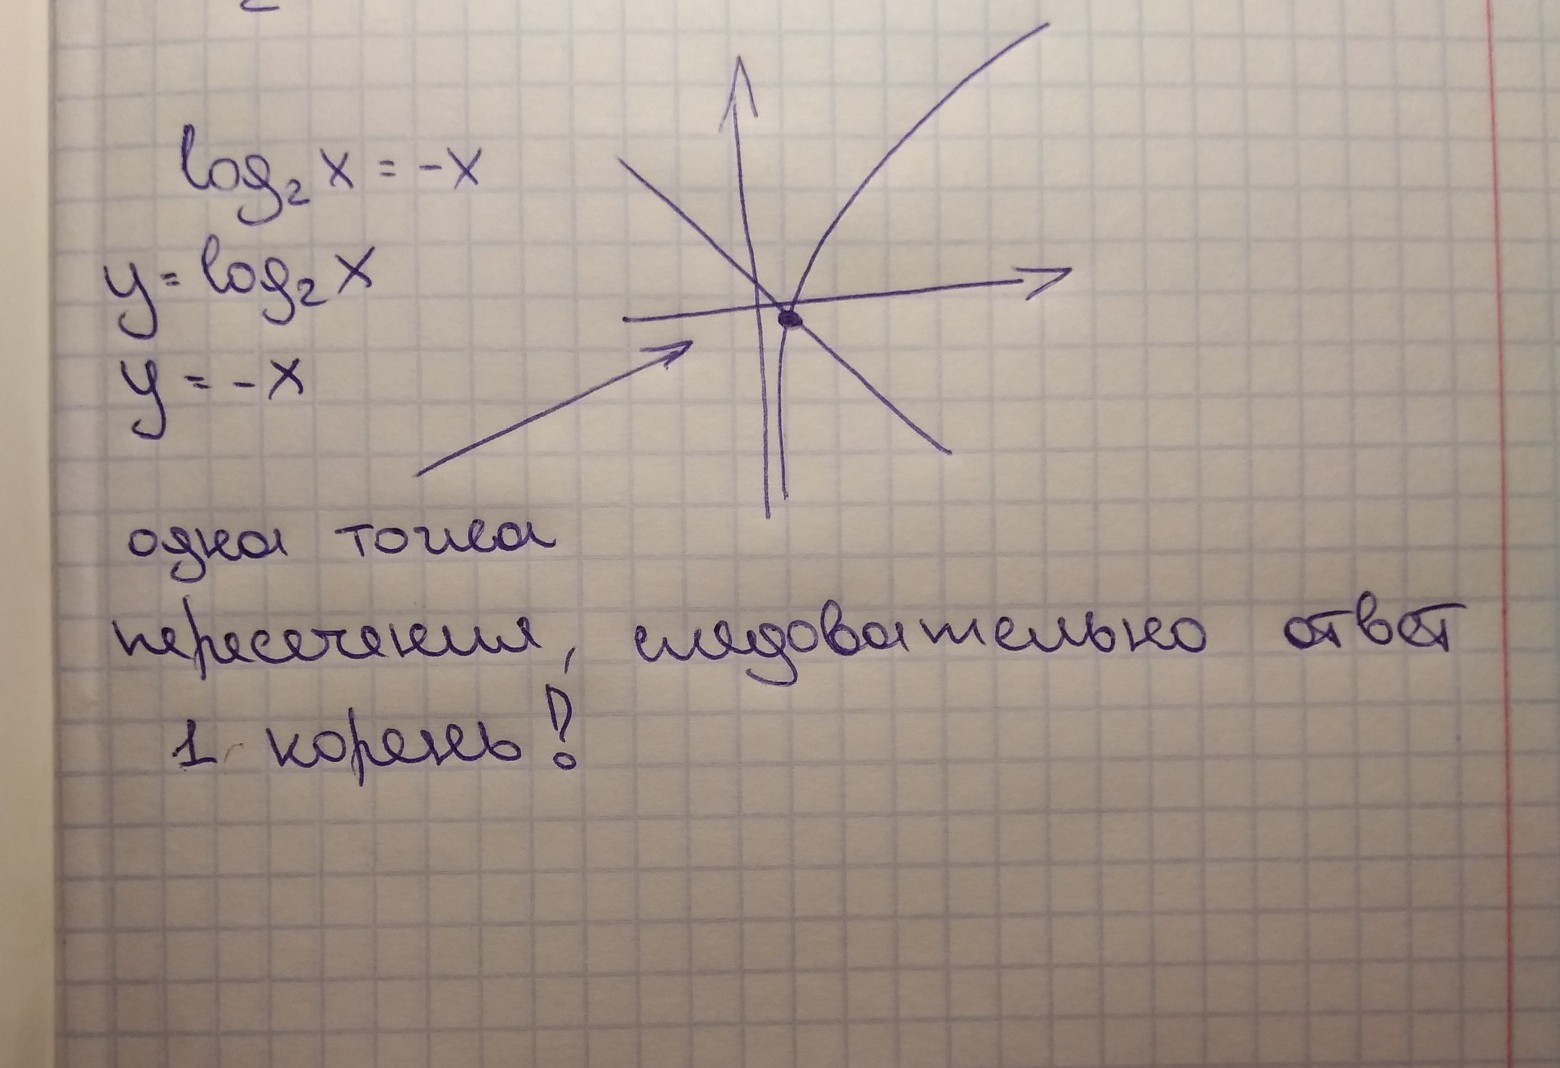 log₂ x = -x
y = log₂ x
y = -x
одна точка
пересечения, следовательно ответ
1 корень!